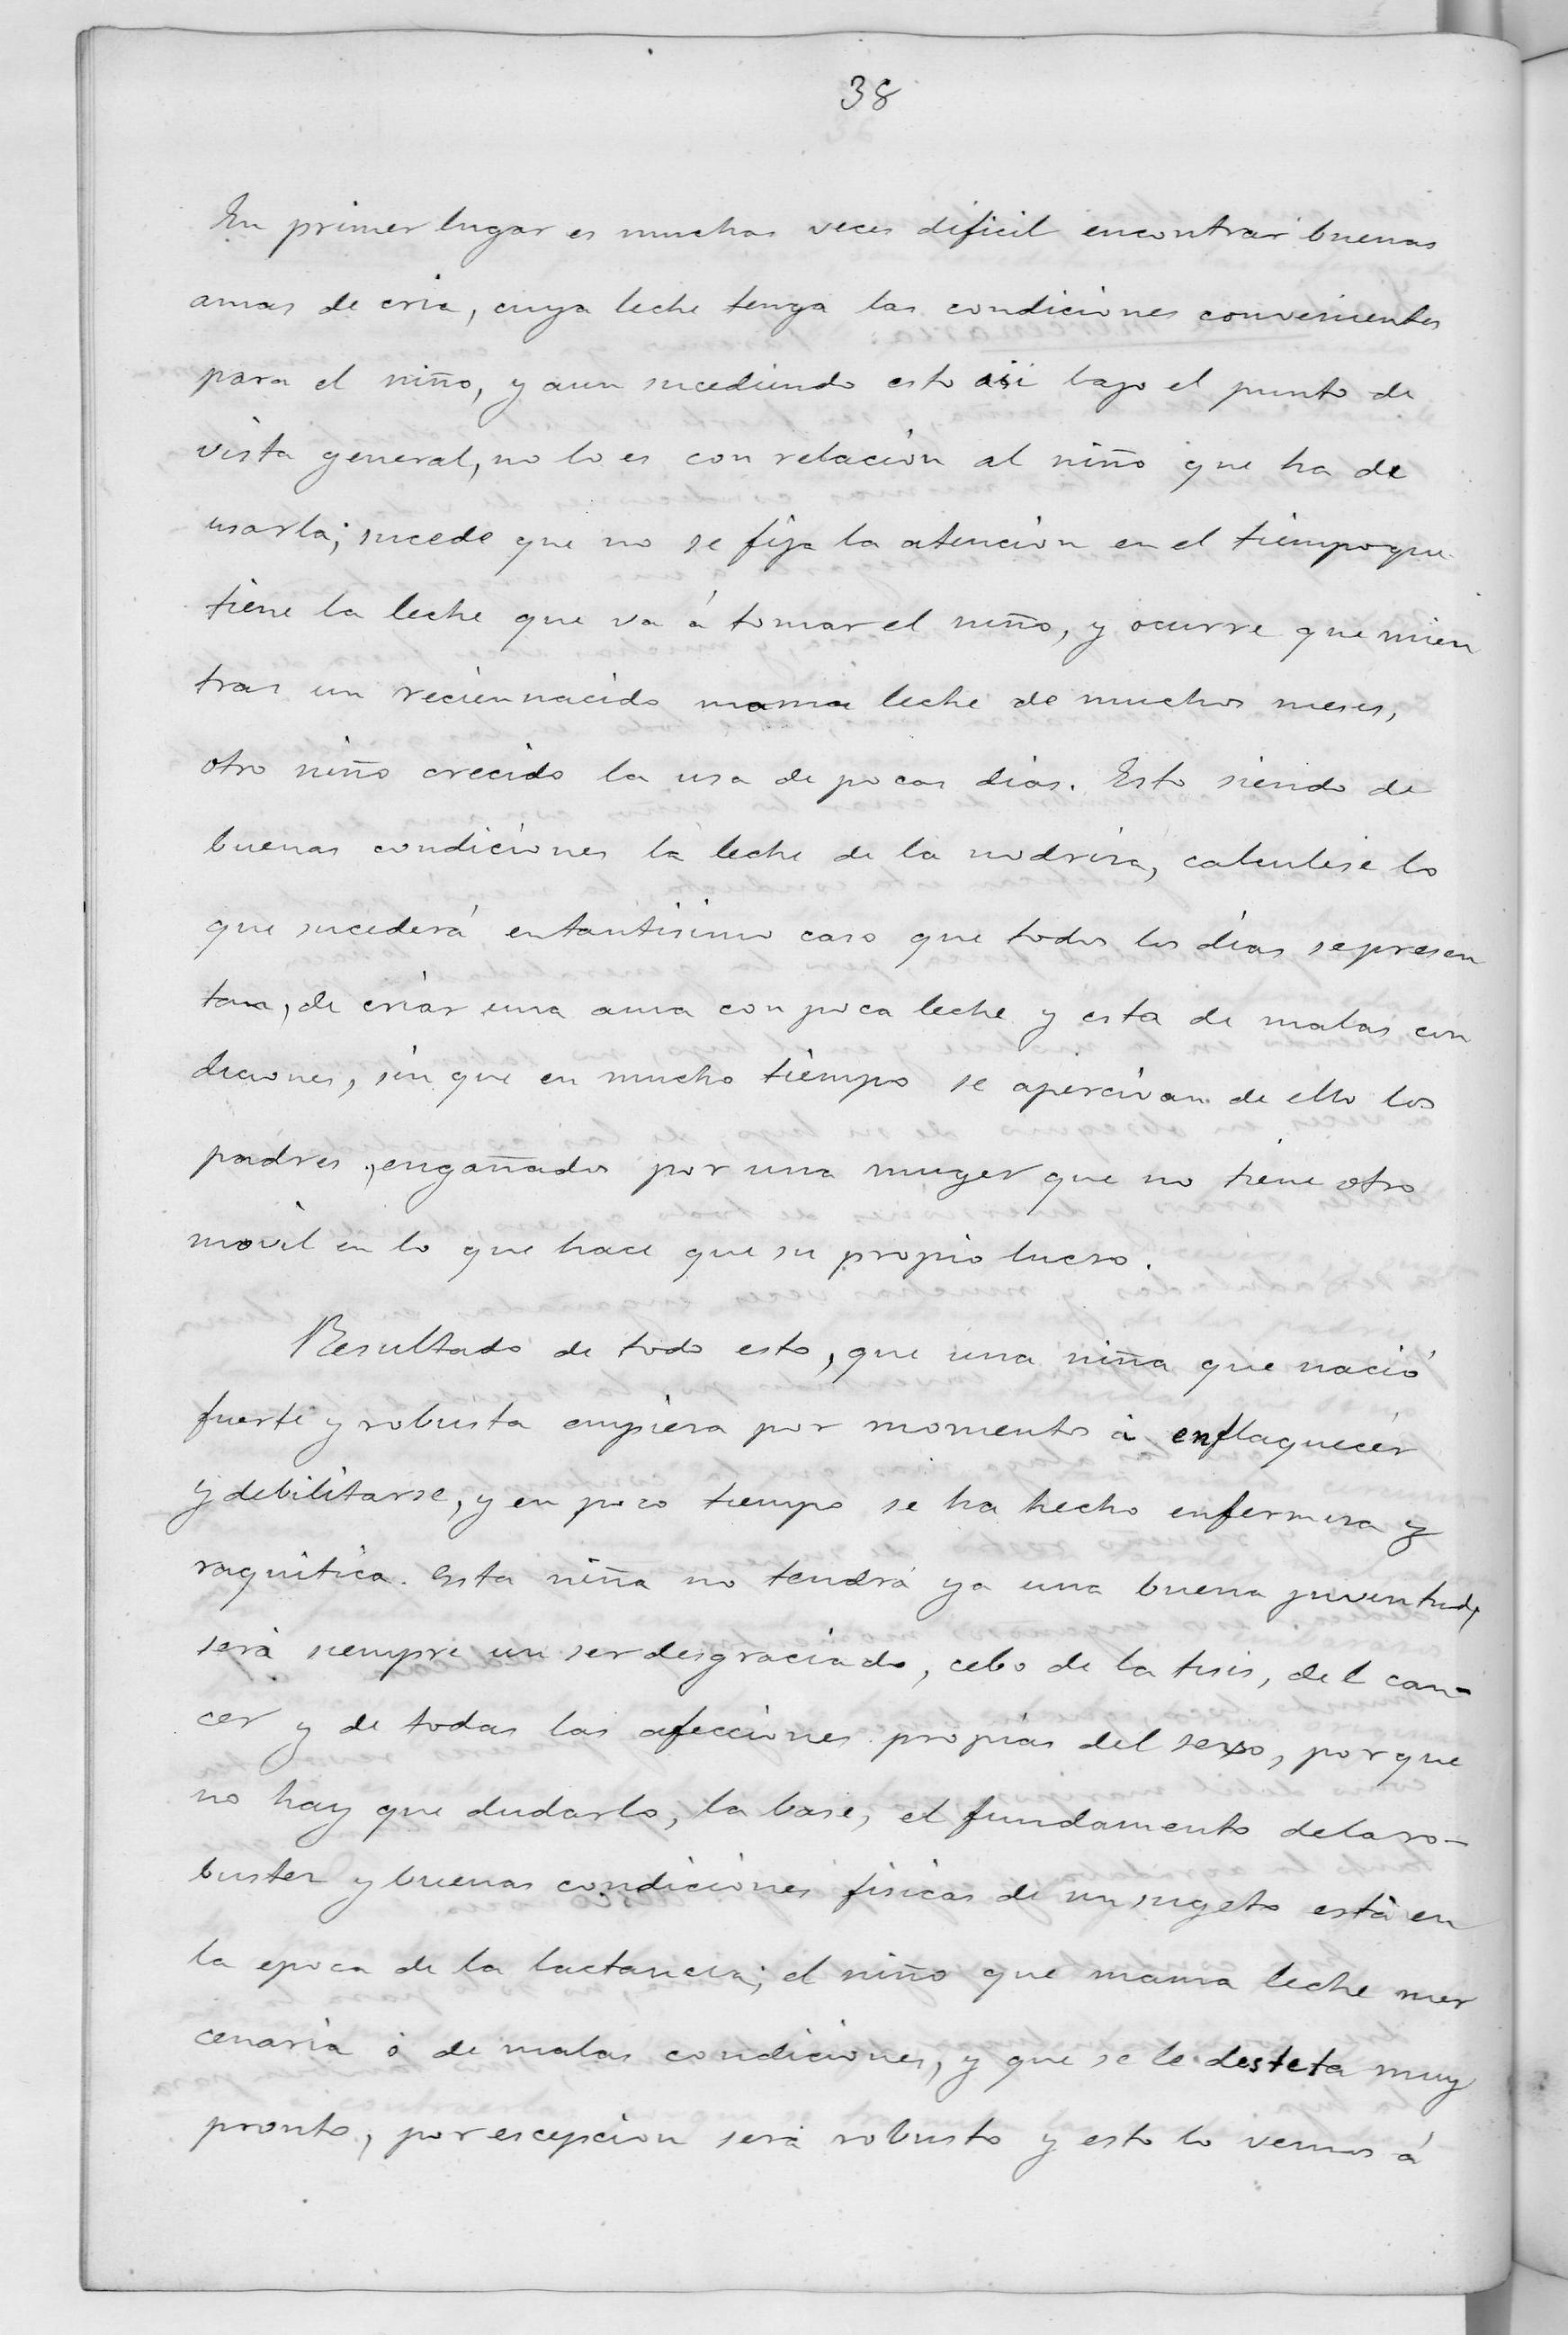 38
En primer lugar es muchas veces dificil encontrar buenas
amas de cria, cuya leche tenga las condiciones convenientes
para el niño, y aun sucediendo esto asi bajo el punto de
vista general, no lo es con relacion al niño que ha de
usarla; sucede que no se fija la atencion en el tiempo que
tiene la leche que va á tomar el niño, y ocurre que mien
tras un recien nacido mama leche de muchos meses,
otro niño crecido la usa de pocos dias. Esto siendo de
buenas condiciones la leche de la nodriza, calculese lo
que sucederá en tantisimo caso que todos los dias se presen
tan, de criar una ama con poca leche y esta de malas con
diciones, sin que en mucho tiempo se apercivan de ello los
padres, engañados por una muger que no tiene otro
movil en lo que hace que su propio lucro.
Resultado de todo esto, que una niña que nació
fuerte y robusta empieza por momentos á enflaquecer
y debilitarse, y en poco tiempo se ha hecho enfermiza y
raquitica. Esta niña no tendrá ya una buena juventud,
será siempre un ser desgraciado, cebo de la tisis, del can-
cer y de todas las afecciones propias del sexo, porque
no hay que dudarlo, la base, el fundamento de la ro-
bustez y buenas condiciones fisicas de un sugeto está en
la epoca de la lactancia; el niño que mama leche mer
cenaria ó de malas condiciones, y que se le desteta muy
pronto, por escepcion será robusto y esto lo vemos á